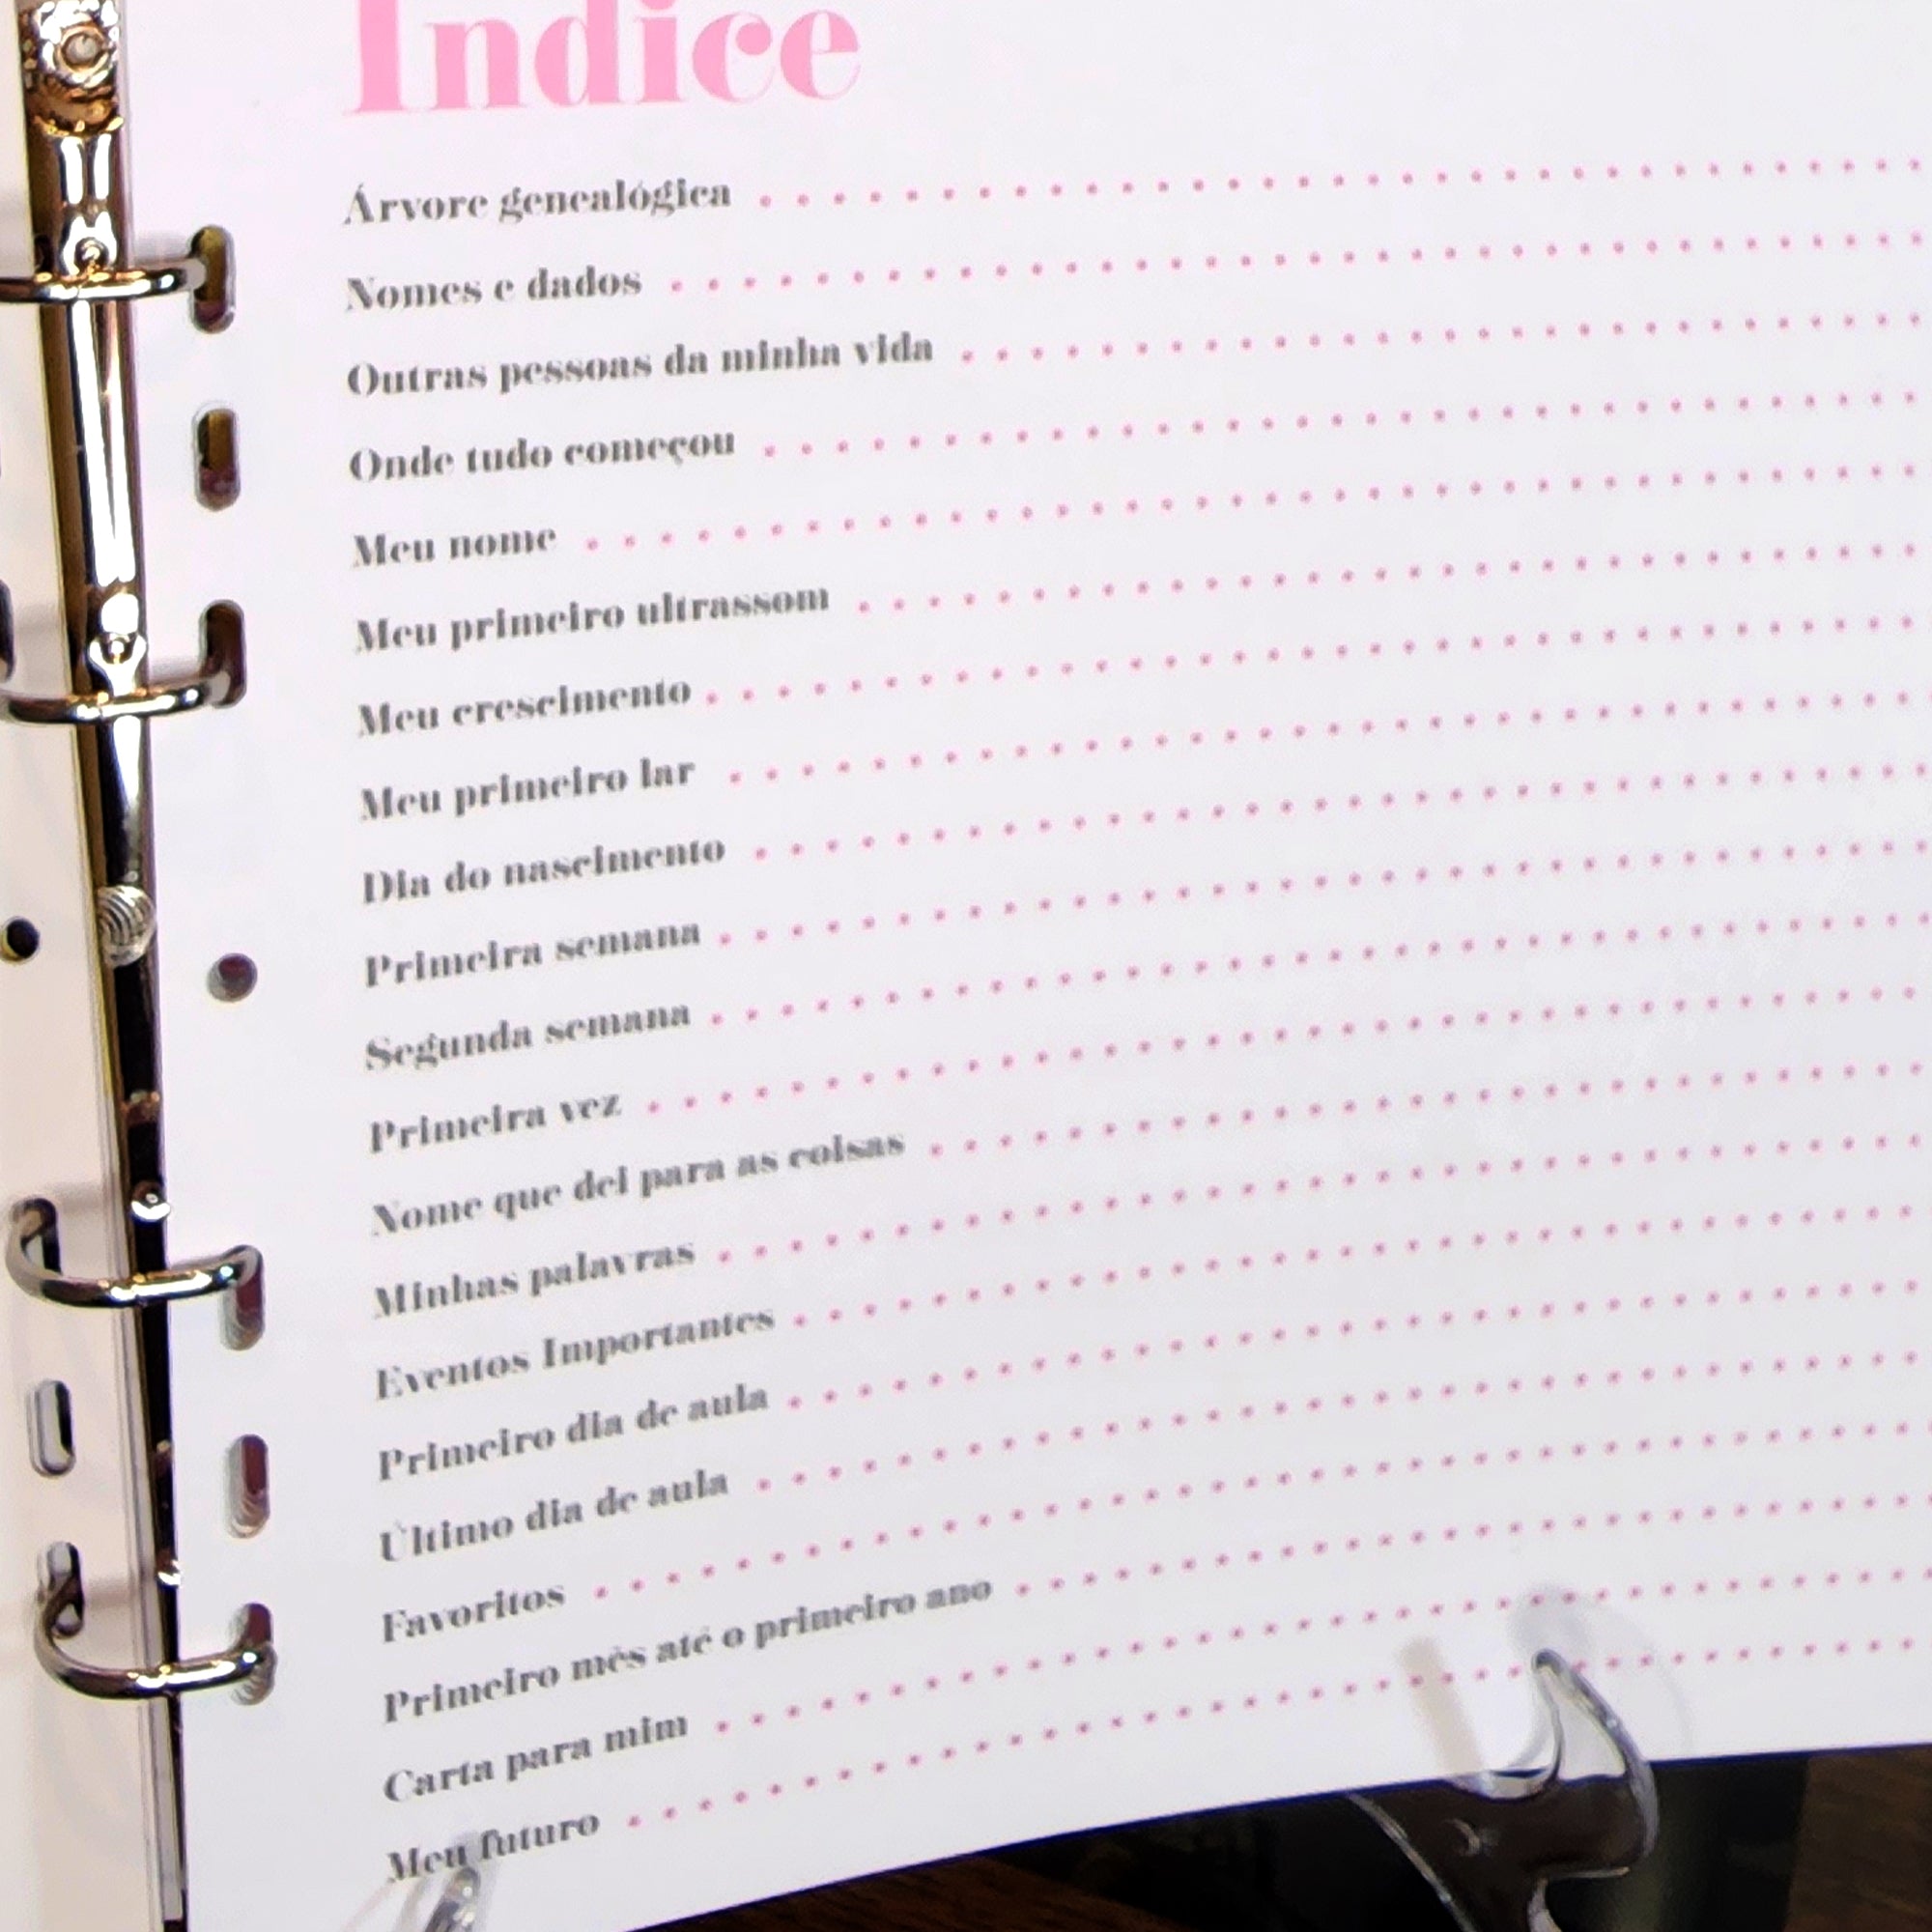 Índice
Árvore genealógica
Nomes e dados
Outras pessoas da minha vida
Onde tudo começou
Meu nome
Meu primeiro ultrassom
Meu crescimento
Meu primeiro lar
Dia do nascimento
Primeira semana
Segunda semana
Primeira vez
Nome que dei para as coisas
Minhas palavras
Eventos Importantes
Primeiro dia de aula
Último dia de aula
Favoritos
Primeiro mês até o primeiro ano
Carta para mim
Meu futuro